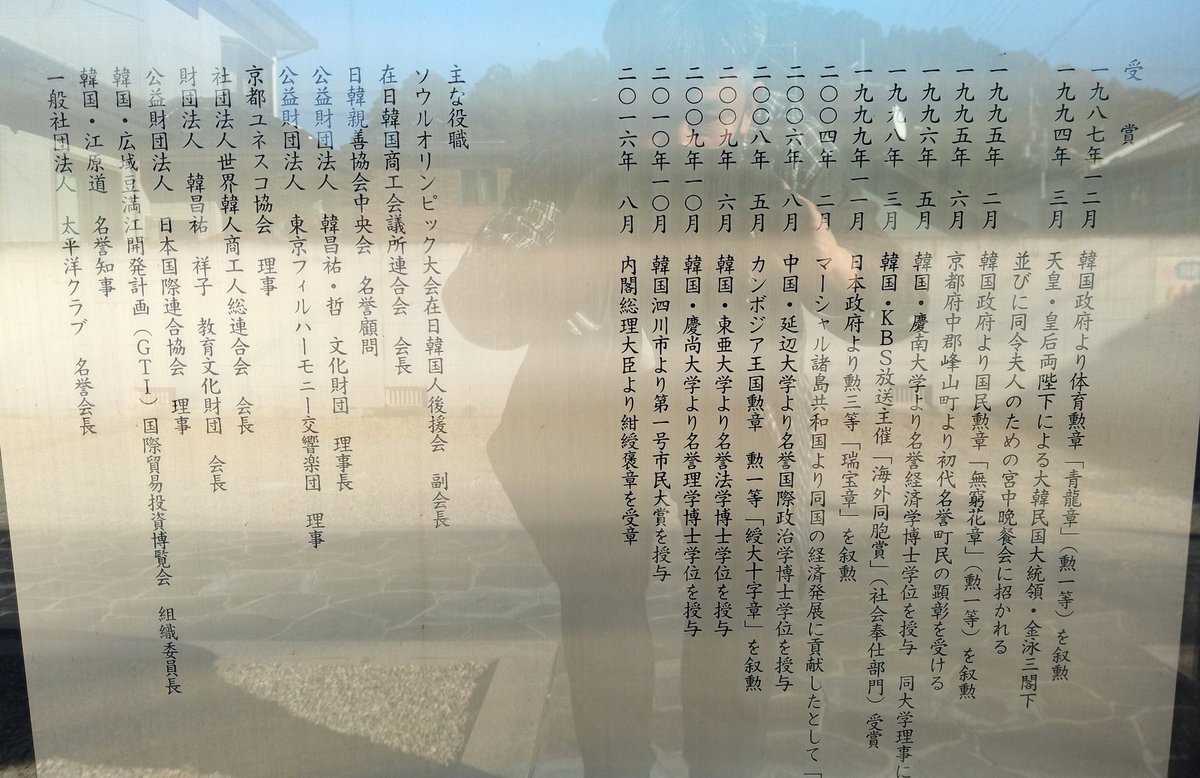 受賞
一九八七年一二月 韓国政府より体育勲章「青龍章」（勲一等）を叙勲
一九九四年 三月 天皇・皇后両陛下による大韓民国大統領・金泳三閣下
並びに同令夫人のための宮中晩餐会に招かれる
一九九五年 二月 韓国政府より国民勲章「無窮花章」（勲一等）を叙勲
一九九五年 六月 京都府中郡峰山町より初代名誉町民の顕彰を受ける
一九九六年 五月 韓国・慶南大学より名誉経済学博士学位を授与 同大学理事に
一九九八年 三月 韓国・KBS放送主催「海外同胞賞」（社会奉仕部門）受賞
一九九九年一一月 日本政府より勲三等「瑞宝章」を叙勲
二〇〇四年 二月 マーシャル諸島共和国より同国の経済発展に貢献したとして「
二〇〇六年 八月 中国・延辺大学より名誉国際政治学博士学位を授与
二〇〇八年 五月 カンボジア王国勲章 勲一等「綬大十字章」を叙勲
二〇〇九年 六月 韓国・東亜大学より名誉法学博士学位を授与
二〇〇九年一〇月 韓国・慶尚大学より名誉理学博士学位を授与
二〇一〇年一〇月 韓国泗川市より第一号市民大賞を授与
二〇一六年 八月 内閣総理大臣より紺綬褒章を受章
主な役職
ソウルオリンピック大会在日韓国人後援会 副会長
在日韓国商工会議所連合会 会長
日韓親善協会中央会 名誉顧問
公益財団法人 韓昌祐・哲 文化財団 理事長
公益財団法人 東京フィルハーモニー交響楽団 理事
京都ユネスコ協会 理事
社団法人世界韓人商工人総連合会 会長
財団法人 韓昌祐 祥子 教育文化財団 会長
公益財団法人 日本国際連合協会 理事
韓国・広域豆満江開発計画（GTI）国際貿易投資博覧会 組織委員長
韓国・江原道 名誉知事
一般社団法人 太平洋クラブ 名誉会長